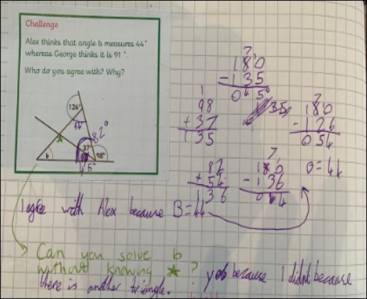 Challenge
Alex thinks that angle b measures 44°
whereas George thinks it is 91°
Who do you agree with? Why?
126°
82°
37
98°
b
180
- 135
045
98
+ 37
135
180
- 126
054
82
+ 54
136
180
- 136
044
b=44
I agree with Alex because B=44
Can you solve b
without knowing * ?
yes because I didnt because
there is another triangle.